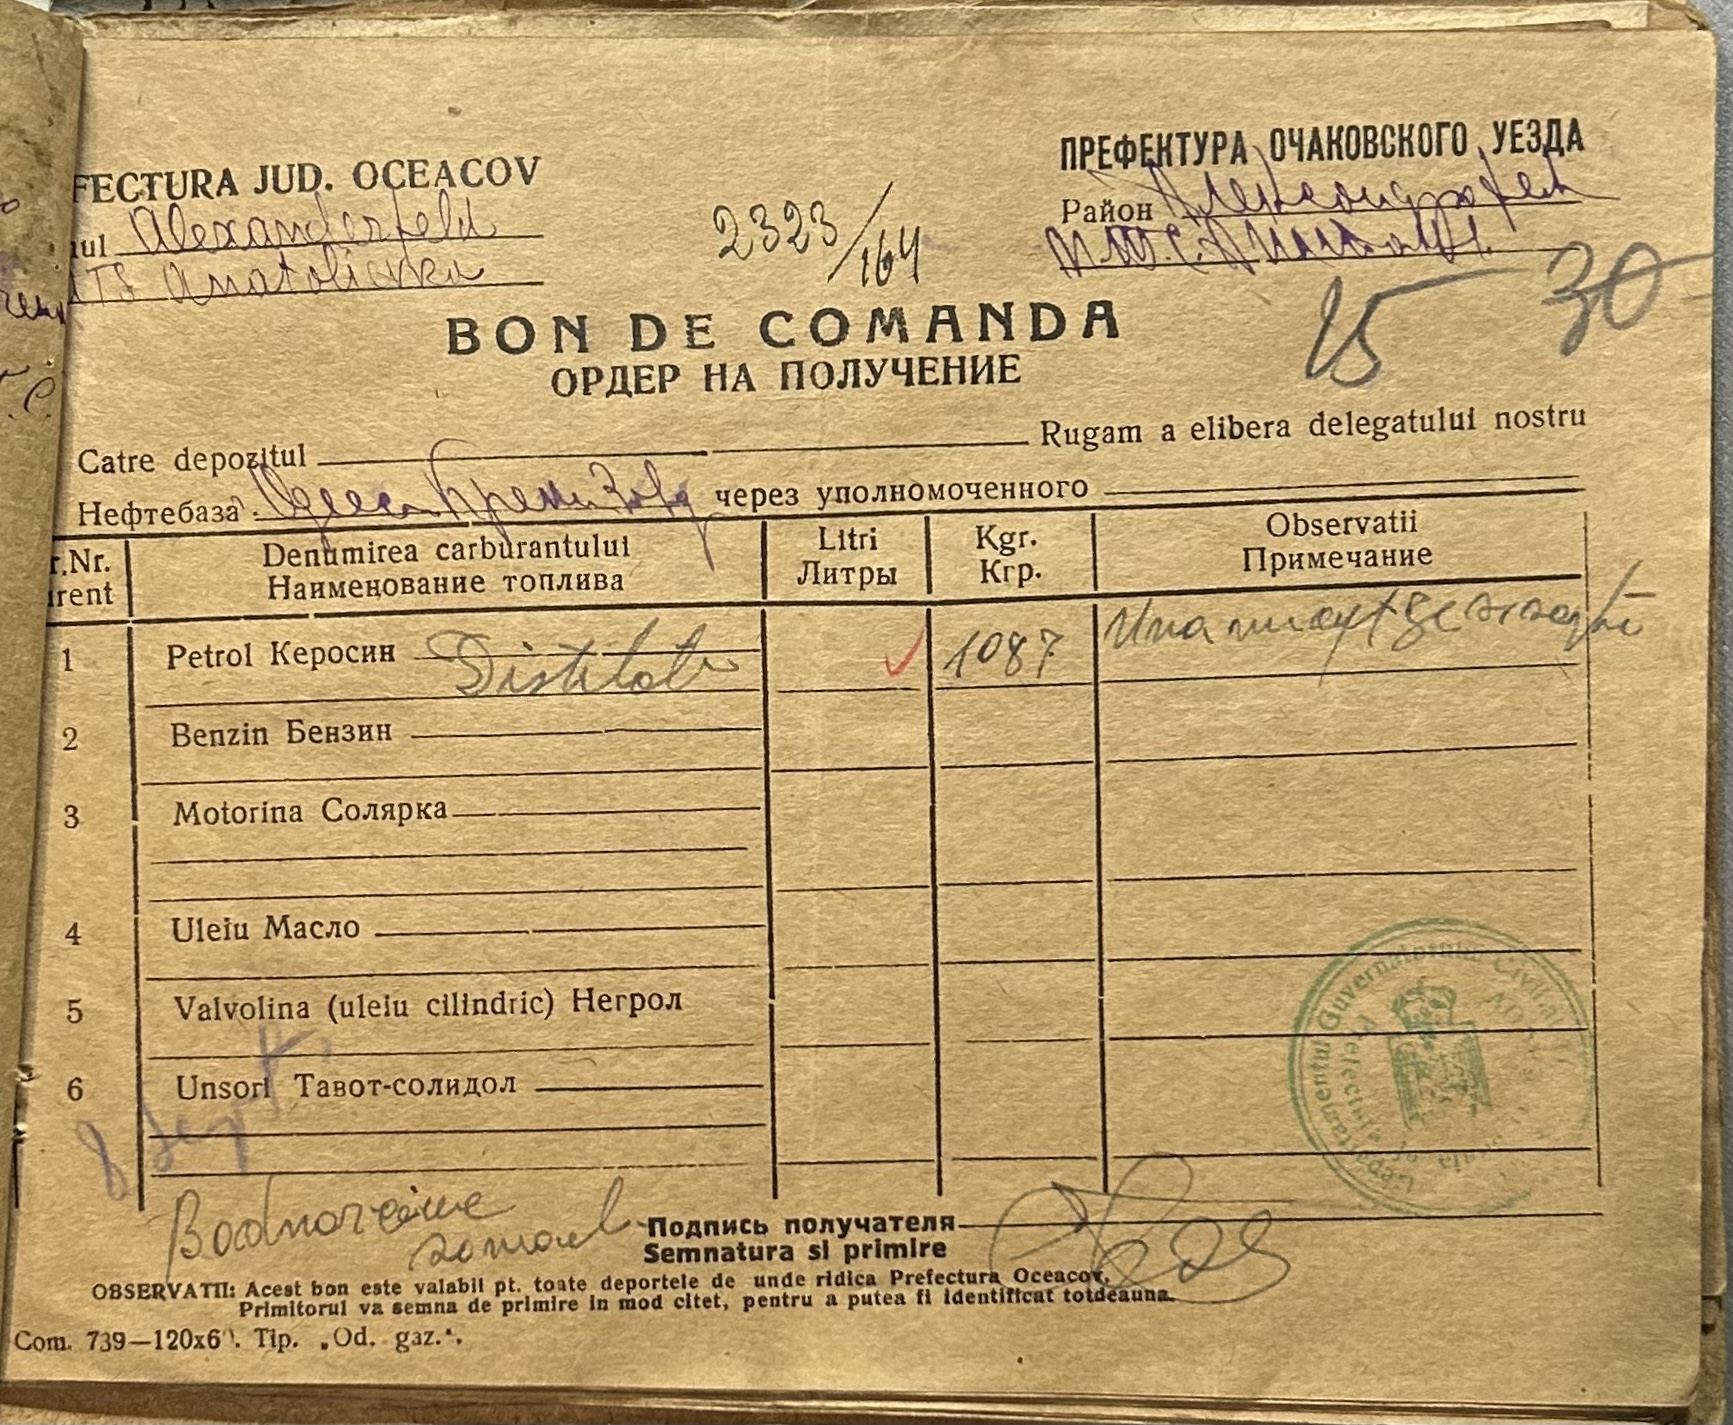 FECTURA JUD. OCEACOV
ПРЕФЕКТУРА ОЧАКОВСКОГО УЕЗДА
ul Alexanderfeld
Район
TS Anatolievka
2323/164
BON DE COMANDA
15 30
ОРДЕР НА ПОЛУЧЕНИЕ
Catre depozitul Rugam a elibera delegatului nostru
Нефтебаза через уполномоченного
r.Nr. Denumirea carburantului Litri Kgr. Observatii
rent Наименование топлива Литры Кгр. Примечание
1 Petrol Керосин Distilat 1087
2 Benzin Бензин
3 Motorina Солярка
4 Uleiu Масло
5 Valvolina (uleiu cilindric) Негрол
6 Unsori Тавот-солидол
8 Sept.
Подпись получателя
Semnatura si primire
OBSERVATII: Acest bon este valabil pt. toate deportele de unde ridica Prefectura Oceacov.
Primitorul va semna de primire in mod citet, pentru a putea fi identificat totdeauna.
Com. 739—120x6 . Tip. „Od. gaz.“.